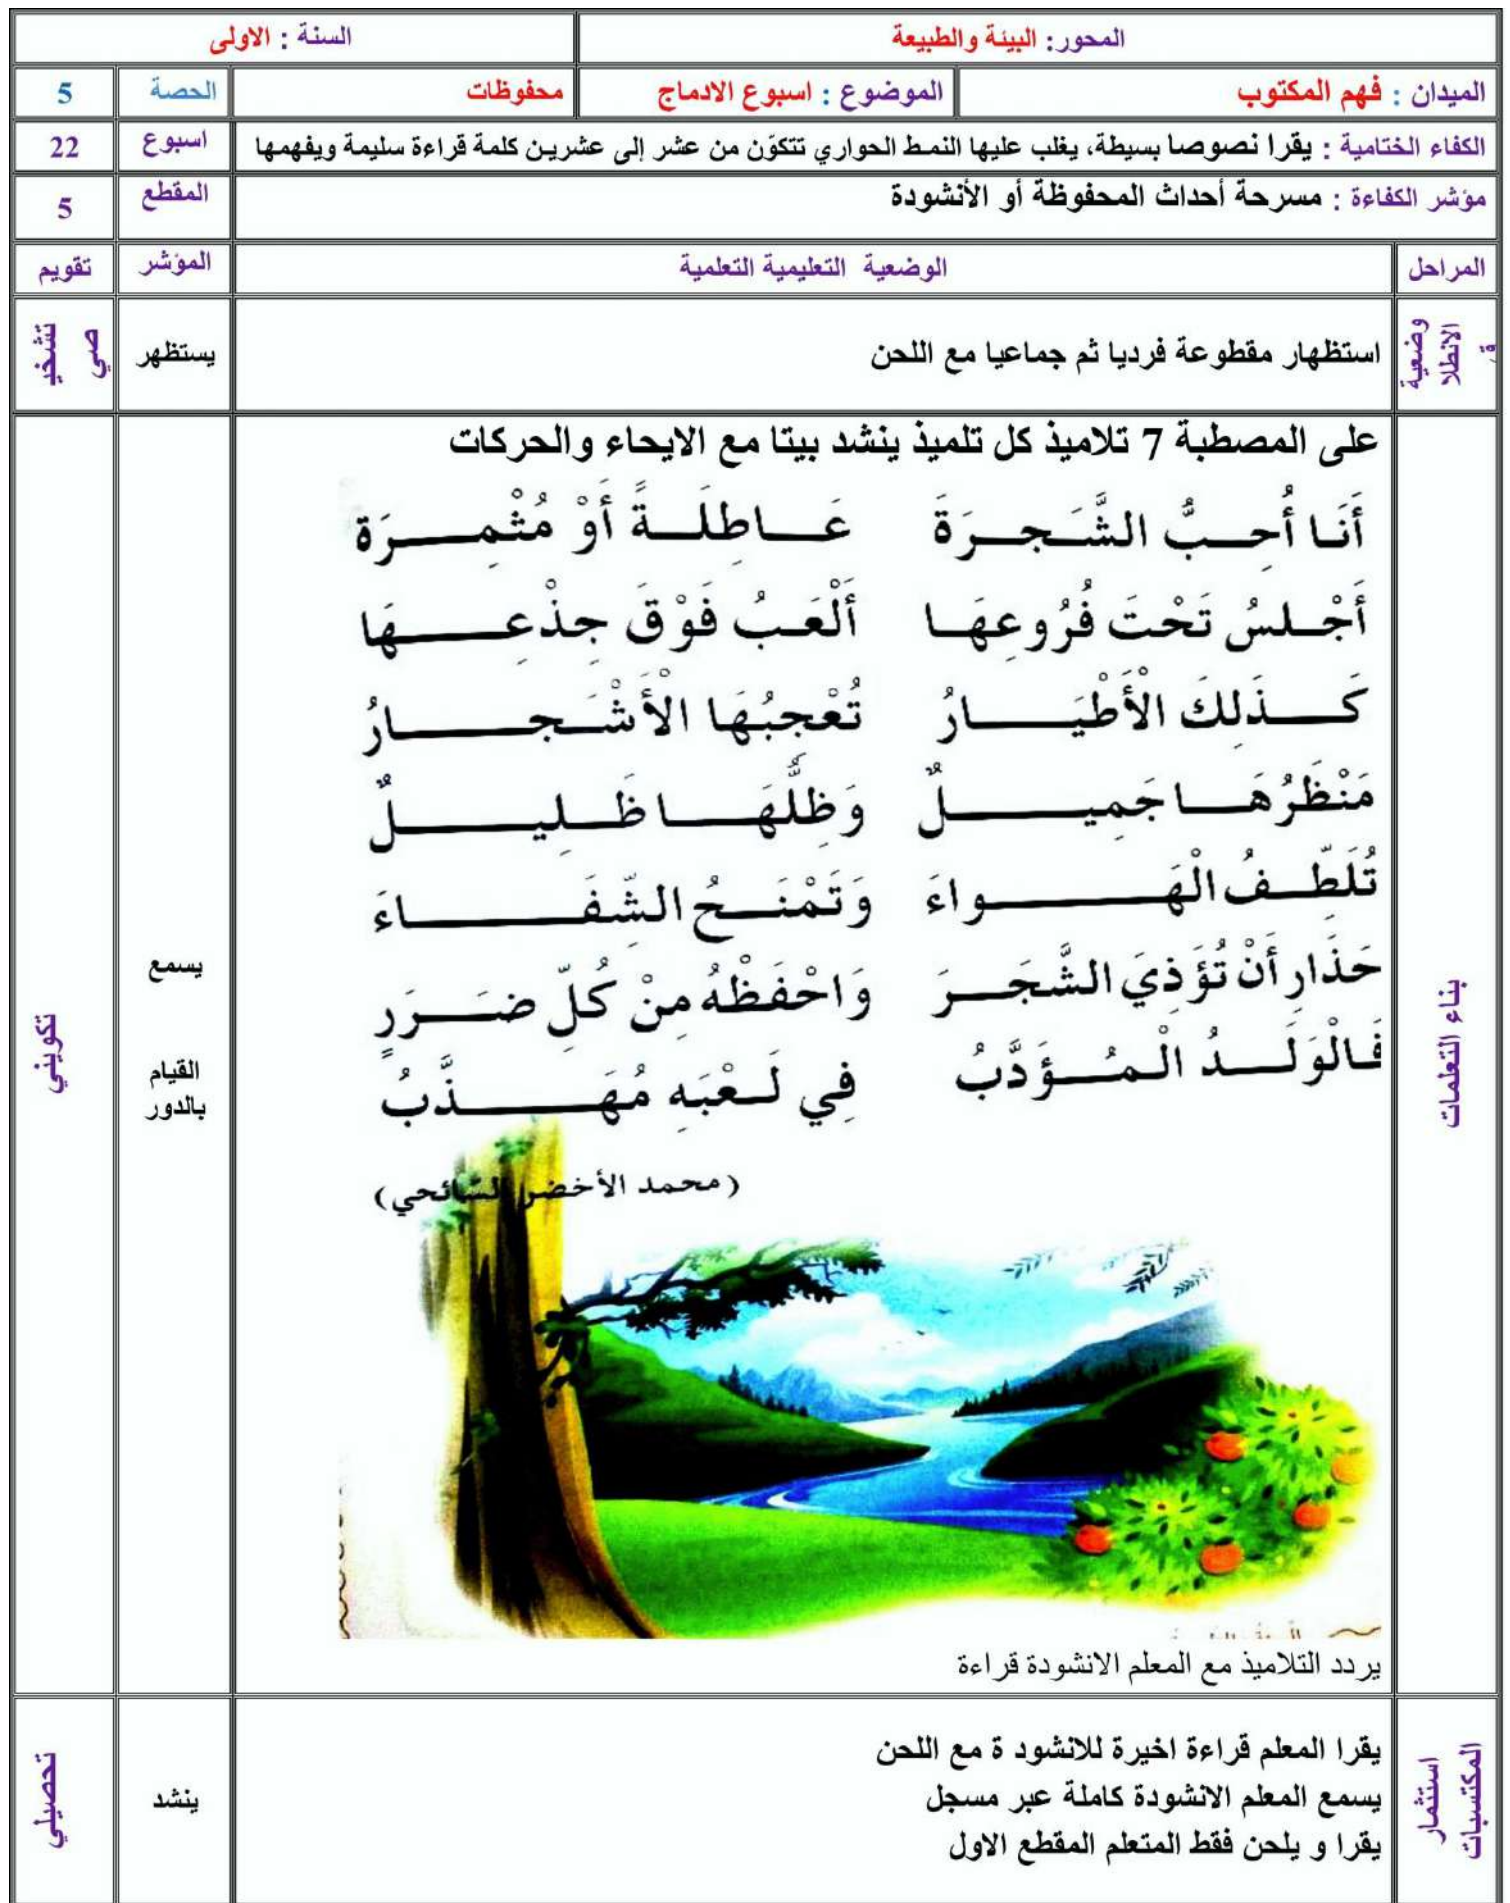 المحور: البيئة والطبيعة السنة : الاولى
الميدان : فهم المكتوب الموضوع : اسبوع الادماج محفوظات الحصة 5
الكفاء الختامية : يقرا نصوصا بسيطة، يغلب عليها النمط الحواري تتكوّن من عشر إلى عشرين كلمة قراءة سليمة ويفهمها اسبوع 22
مؤشر الكفاءة : مسرحة أحداث المحفوظة أو الأنشودة المقطع 5
المراحل الوضعية التعليمية التعلمية المؤشر تقويم
وضعية الانطلاق استظهار مقطوعة فرديا ثم جماعيا مع اللحن يستظهر تشخيصي
على المصطبة 7 تلاميذ كل تلميذ ينشد بيتا مع الايحاء والحركات
أَنَا أُحِبُّ الشَّجَرَةَ عَاطِلَةً أَوْ مُثْمِرَة
أَجْلسُ تَحْتَ فُرُوعِهَا أَلْعَبُ فَوْقَ جِذْعِهَا
كَذَلِكَ الْأَطْيَارُ تُعْجِبُهَا الْأَشْجَارُ
مَنْظَرُهَا جَمِيلٌ وَظِلُّهَا ظَلِيلٌ
تُلَطِّفُ الْهَوَاءَ وَتَمْنَحُ الشِّفَاءَ
حَذَارِ أَنْ تُؤَذِيَ الشَّجَرَ وَاحْفَظْهُ مِنْ كُلِّ ضَرَرٍ
فَالْوَلَدُ الْمُؤَدَّبُ فِي لَعْبَهِ مُهَذَّبُ
(محمد الأخضر السائحي)
يسمع
القيام
بالدور
بناء التعلمات
تكويني
يردد التلاميذ مع المعلم الانشودة قراءة
يقرا المعلم قراءة اخيرة للانشود ة مع اللحن
يسمع المعلم الانشودة كاملة عبر مسجل
يقرا و يلحن فقط المتعلم المقطع الاول
استثمار
المكتسبات
ينشد
تحصيلي